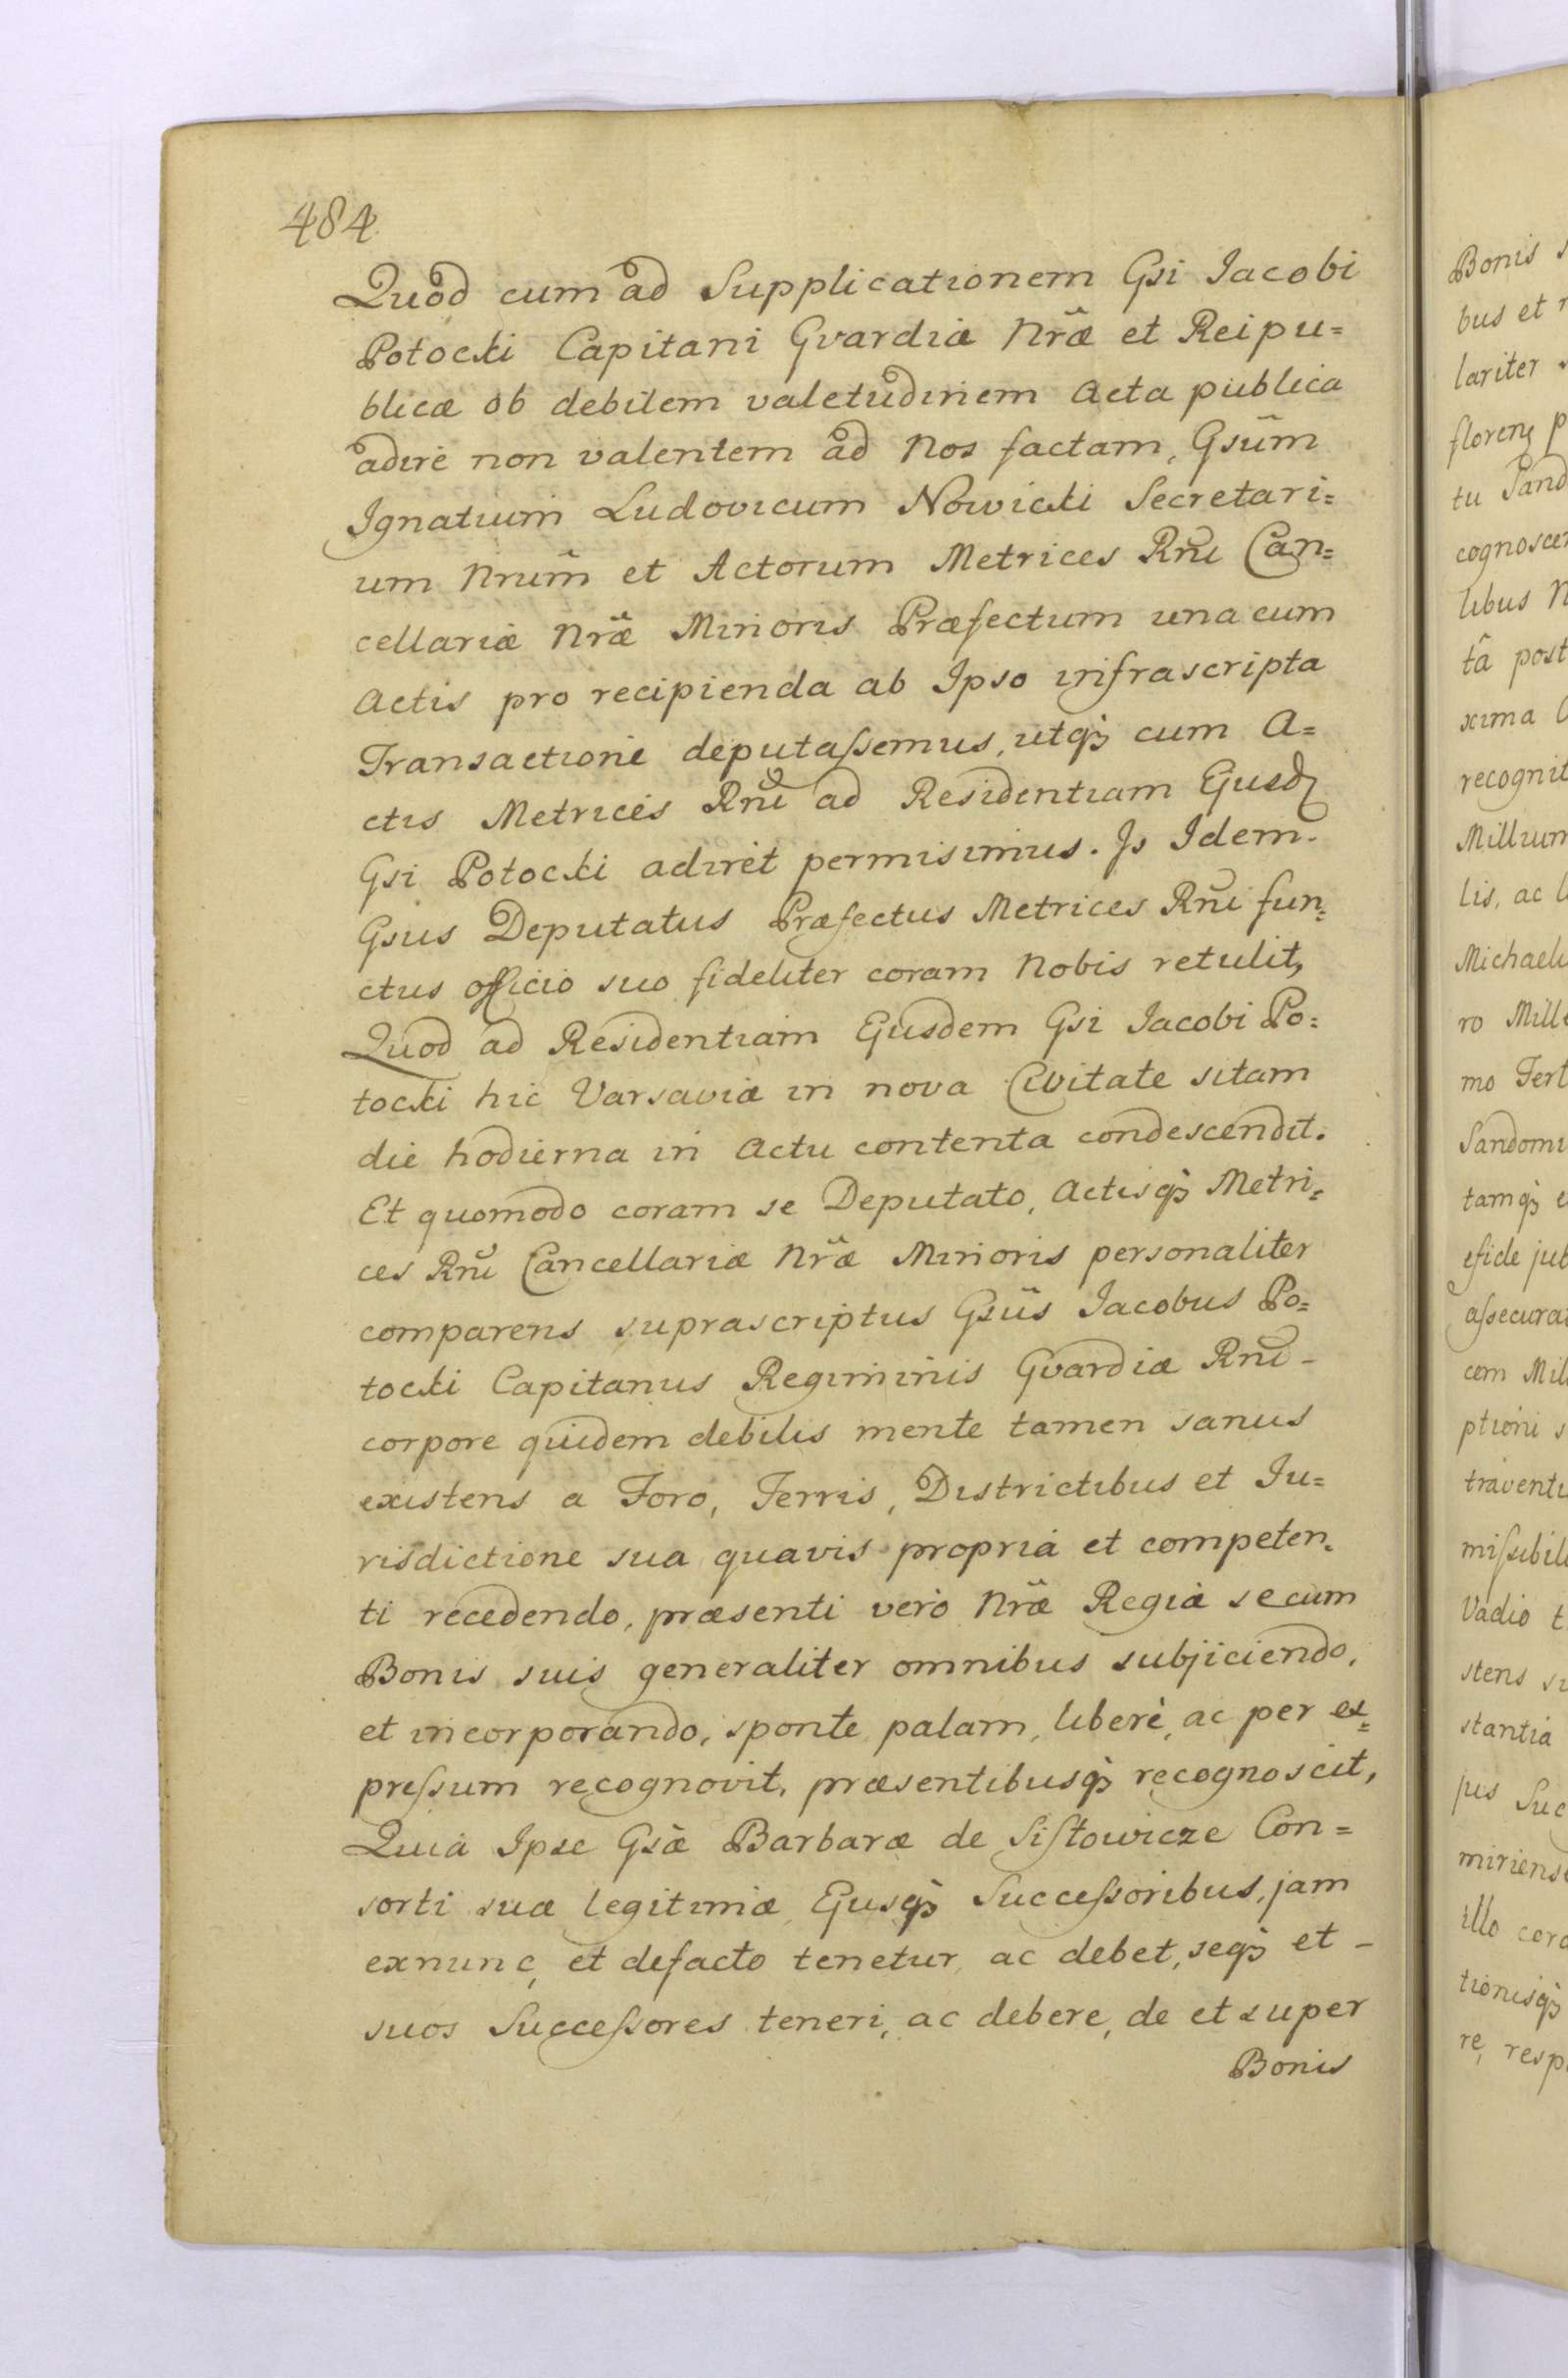 484
Quod cum ad Supplicationem Gsi Jacobi
Potocki Capitani Gvardiæ Nræ et Reipu=
blicæ ob debilem valetudinem Acta publica
adire non valentem ad Nos factam, Gsum
Ignatium Ludovicum Nowicki Secretari=
um Nrum et Actorum Metrices Rni Can=
cellariæ Nræ Minoris Præfectum una cum
Actis pro recipienda ab Ipso infrascripta
Transactione deputaſsemus, utqȝ cum A=
ctis Metrices Rni ad Residentiam Ejusd
Gsi Potocki adiret permisimus. Is Idem
Gsus Deputatus Præfectus Metrices Rni fun=
ctus officio suo fideliter coram Nobis retulit,
Quod ad Residentiam Ejusdem Gsi Jacobi Po=
tocki hic Varsaviæ in nova Civitate sitam
die hodierna in Actu contenta condescendit.
Et quomodo coram se Deputato, Actisqȝ Metri=
ces Rni Cancellariæ Nræ Minoris personaliter
comparens suprascriptus Gsus Jacobus Po=
tocki Capitanus Regiminis Gvardiæ Rni -
corpore quidem debilis mente tamen sanus
existens a Foro, Terris, Districtibus et Ju=
risdictione sua quavis propria et competen=
ti recedendo, præsenti verò Nræ Regiæ secum
Bonis suis generaliter omnibus subjiciendo,
et incorporando, sponte palam, liberè, ac per ex=
preſsum recognovit, præsentibusqȝ recognoscit,
Quia Ipse Gsæ Barbaræ de Siſtowicze Con=
sorti suæ legitimæ, Ejusqȝ Succeſsoribus, jam
exnunc, et defacto tenetur, ac debet, seqȝ et -
suos Succeſsores teneri, ac debere, de et super
Bonis
Bonis
bus et
lariter
floren
tu Sand
cognosce
libus
tâ post
xima
recognit
Millium
lis, ac
Michaeli
ro Mill
mo Tert
Sandomi
tamqȝ
efide jub
aſsecura
cem Mil
ptioni
traventi
miſsibil
Vadio
stens
stantia
jus Suc
miriens
illo cor
tionisqȝ
re, resp